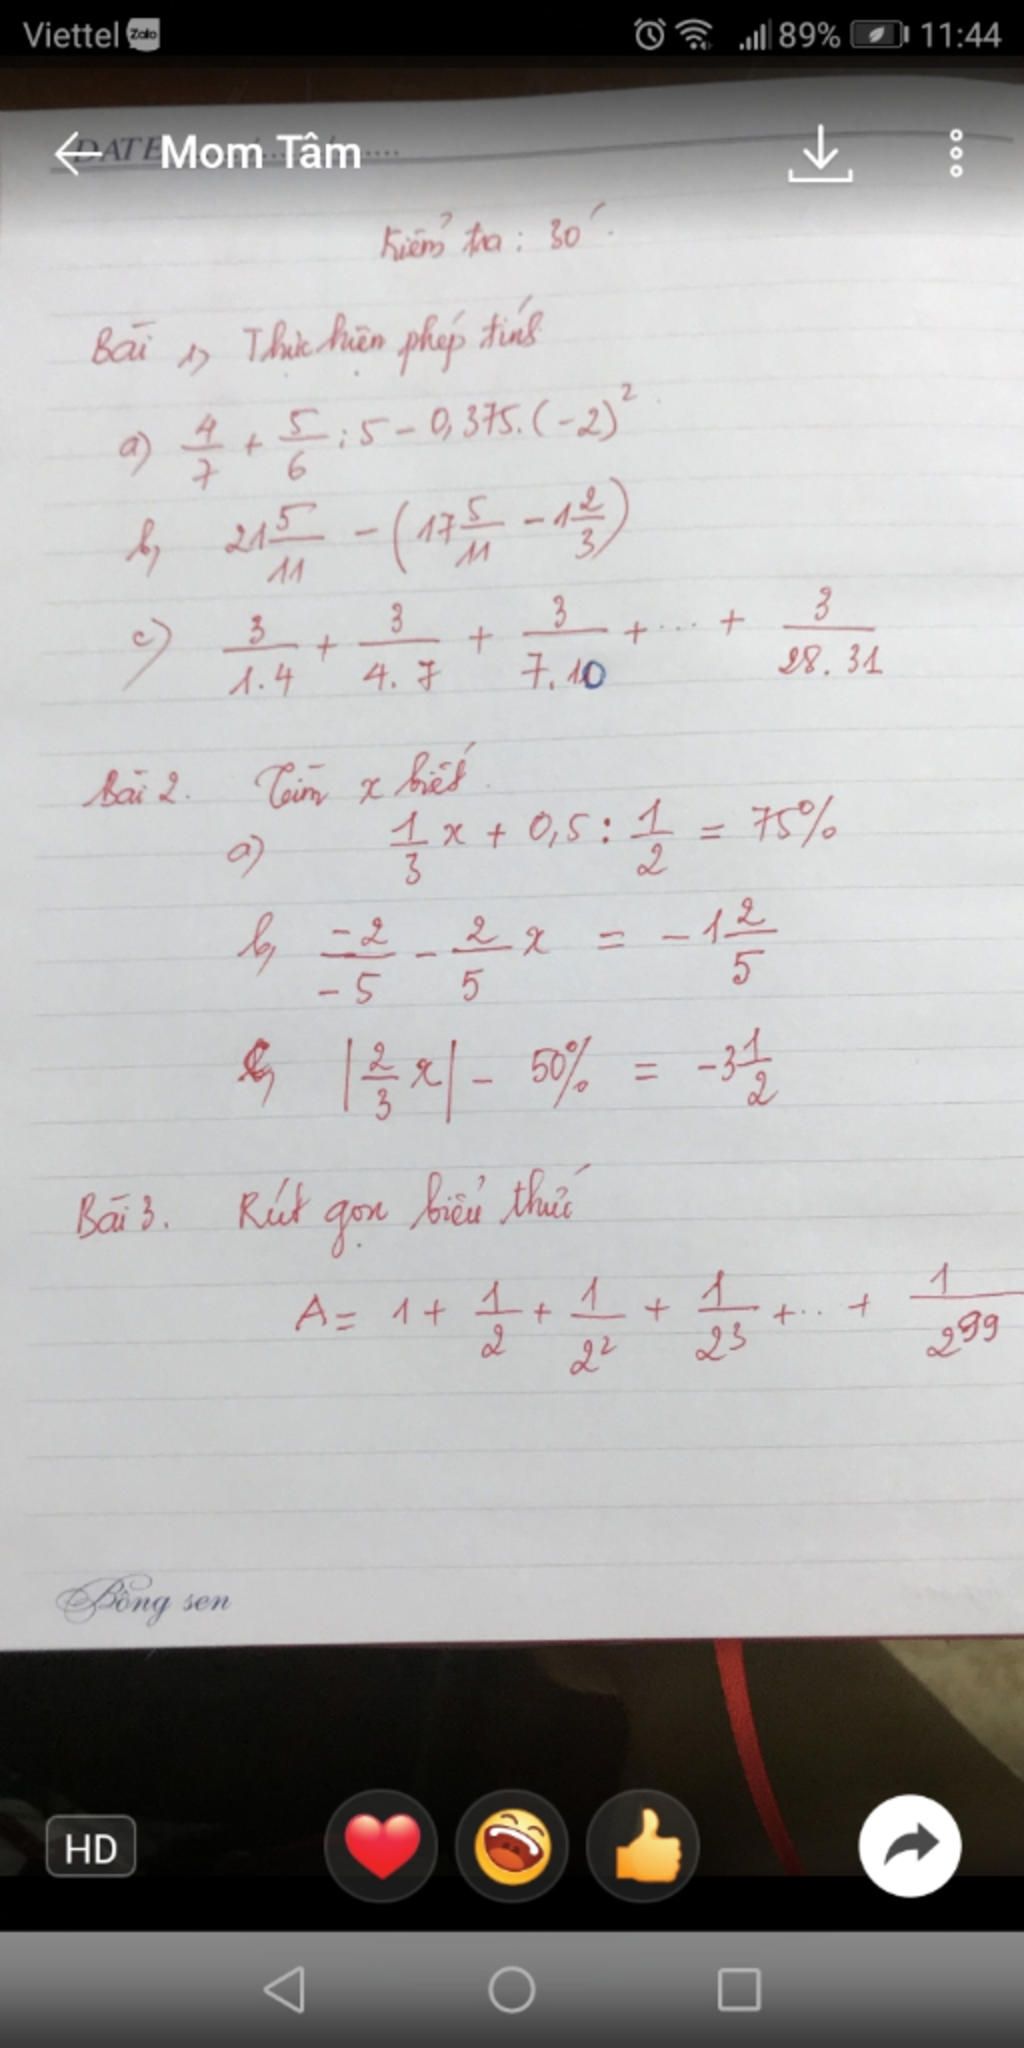 Viettel Zalo 89% 11:44
DATE ....
Mom Tâm
Kiểm tra: 30'.
Bài 1, Thực hiện phép tính
a) 4/7 + 5/6 : 5 - 0,375. (-2)²
b, 21 5/11 - (17 5/11 - 1 2/3)
c) 3/1.4 + 3/4.7 + 3/7.10 + ... + 3/28.31
Bài 2. Tìm x biết.
a) 1/3 x + 0,5 : 1/2 = 75%
b, -2/-5 - 2/5 x = -1 2/5
c, |2/3 x| - 50% = -3 1/2
Bài 3. Rút gọn biểu thức
A = 1 + 1/2 + 1/2² + 1/2³ + ... + 1/2⁹⁹
Bông sen
HD